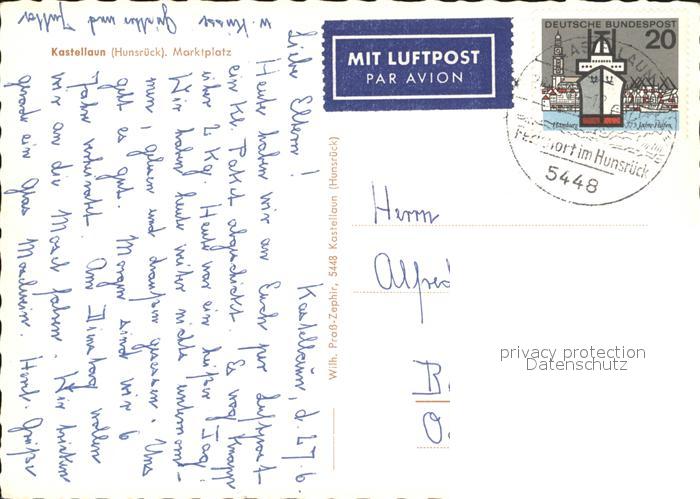 Kastellaun (Hunsrück). Marktplatz
MIT LUFTPOST
PAR AVION
DEUTSCHE BUNDESPOST
20
Hamburg 775 Jahre Hafen
KASTELLAUN
Ferienort im Hunsrück
5448
Kastellaun, d. 27.6.
Liebe Eltern!
Heute haben wir an Euch per Luftpost
ein kl. Paket abgeschickt. Es wog knapp
über 2 Kg. Heute war ein heißer Tag!
Wir haben heute weiter nichts unternom-
men, gelesen und draußen gesessen. Uns
geht es gut. Morgen sind wir 6
Jahre verheiratet. Am Dienstag wollen
wir an die Mosel fahren. Wir trinken
gerade ein Glas Moselwein. Herzl. Grüße
u. Küsse Günther und Jutta
Wilh. Praß-Zephir, 5448 Kastellaun (Hunsrück)
Herrn
Alfred
B.
O.
privacy protection
Datenschutz